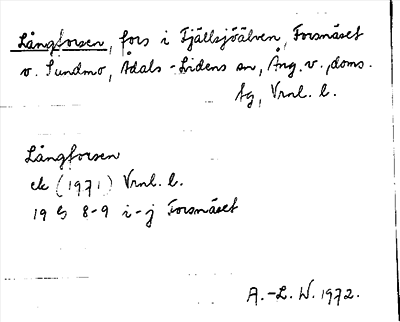 Långforsen, fors i Fjällsjöälven, Forsnäset
v. Sundmo, Ådals-Lidens sn, Ång. v., doms.
fg, Vrnl. l.
Långforsen
ek (1971) Vrnl. l.
19 G 8-9 i-j Forsnäset
A.-L. W. 1972.